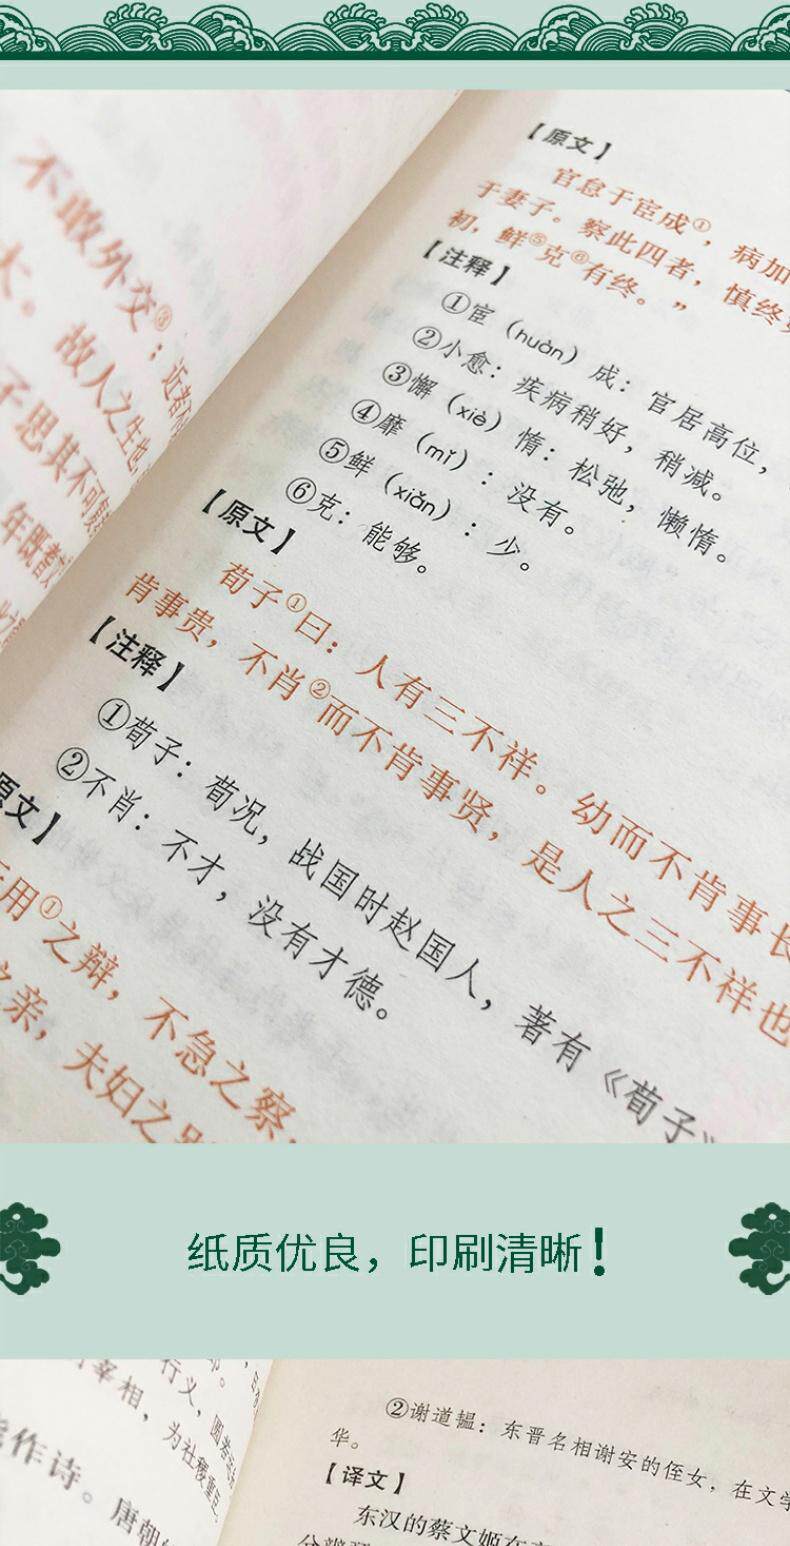 不敢外交③；近者
大。故人之生也
子思其不可
年既耆
【原文】
官怠于宦成①，病加
于妻子。察此四者，慎终
初，鲜⑤克⑥有终。”
【注释】
①宦（huàn）成：官居高位，
②小愈：疾病稍好，稍减。
③懈（xiè）惰：松弛，懒惰。
④靡（mǐ）：没有。
⑤鲜（xiǎn）：少。
⑥克：能够。
【原文】
荀子①曰：人有三不祥。幼而不肯事长
肯事贵，不肖②而不肯事贤，是人之三不祥也
【注释】
①荀子：荀况，战国时赵国人，著有《荀子》
②不肖：不才，没有才德。
原文】
用①之辩，不急之察，
之亲，夫妇之别
纸质优良，印刷清晰！
宰相，为社稷重臣
行义，
能作诗。唐朝
②谢道韫：东晋名相谢安的侄女，在文学
华。
【译文】
东汉的蔡文姬在
分辨琴